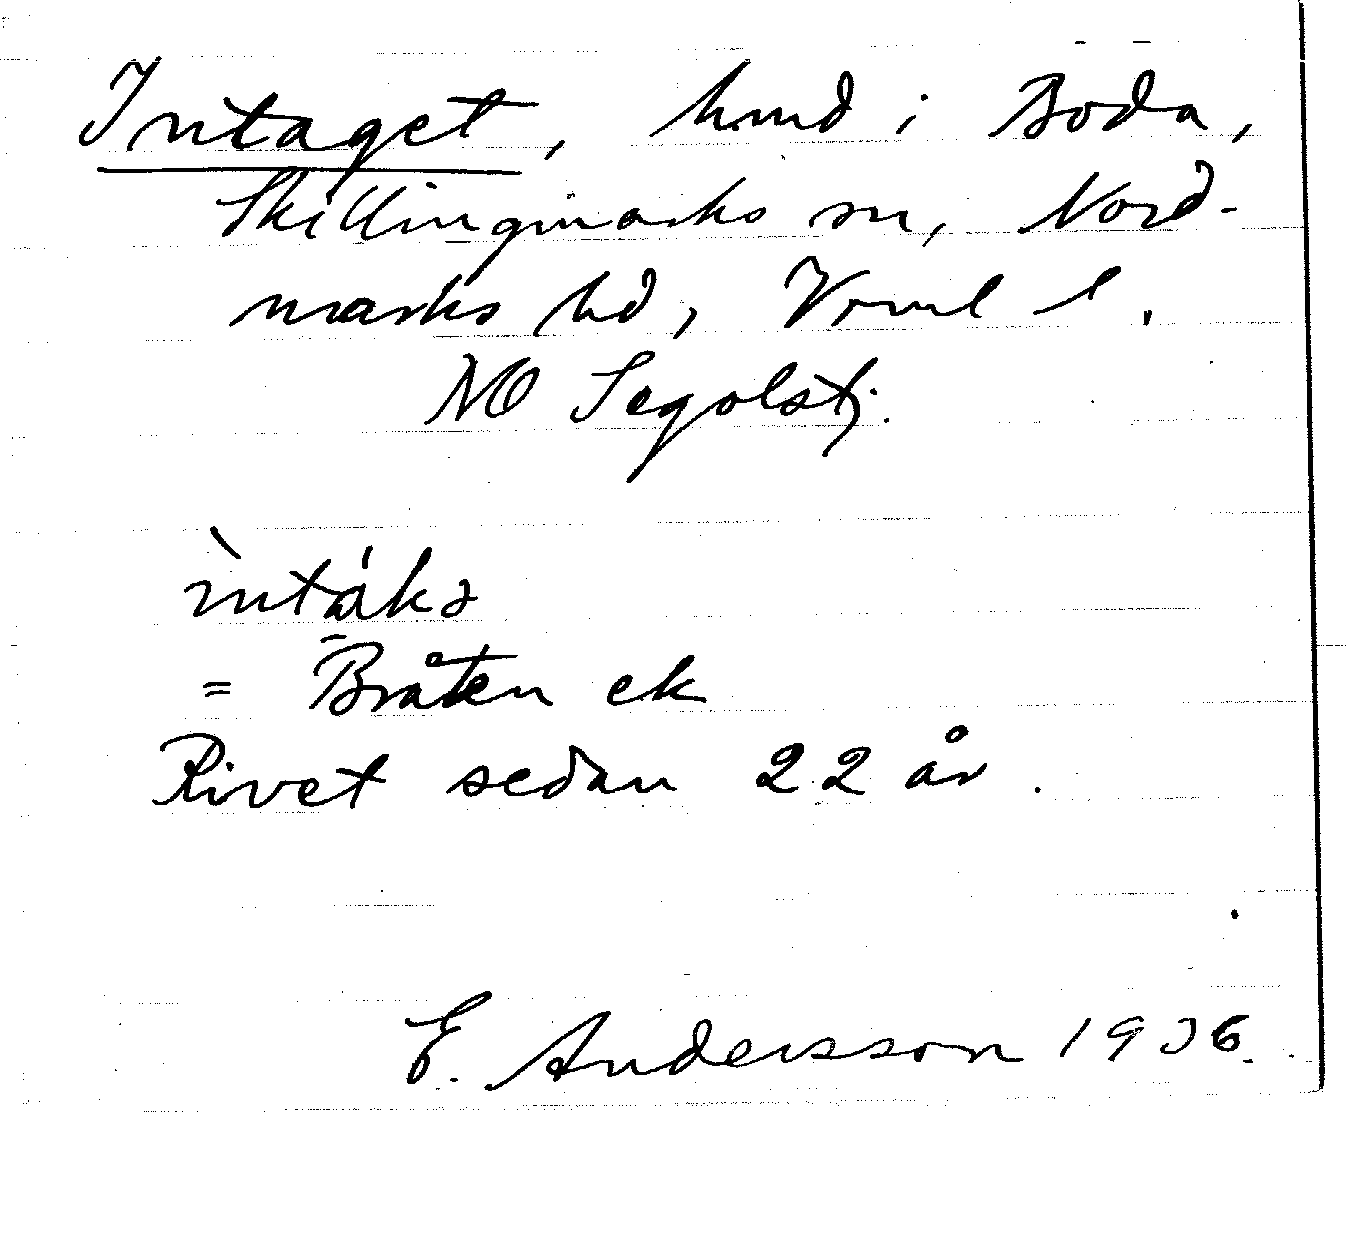 Intaget, hmd i Boda,
Skillingmarks sn, Nord-
marks hd, Vrml l.
NO Segolstj.
ìntákə
= Bråten ek
Rivet sedan 22 år.
E. Andersson 1936.